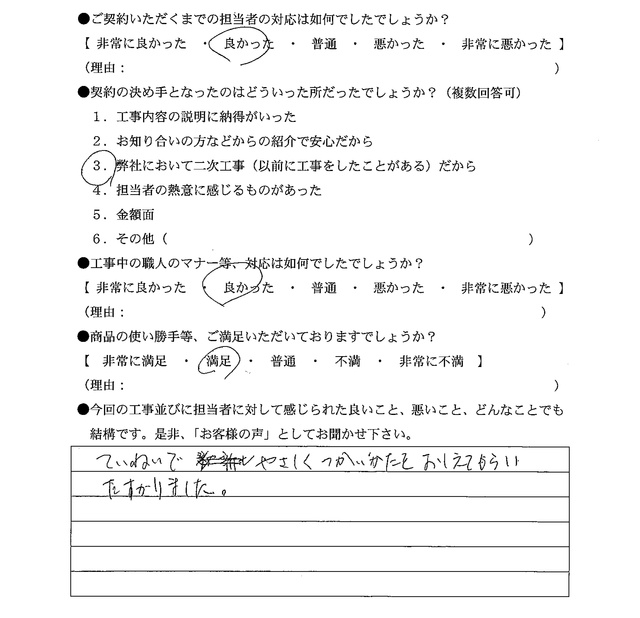 ●ご契約いただくまでの担当者の対応は如何でしたでしょうか？
【 非常に良かった ・ 良かった ・ 普通 ・ 悪かった ・ 非常に悪かった 】
（理由： ）
●契約の決め手となったのはどういった所だったでしょうか？（複数回答可）
１．工事内容の説明に納得がいった
２．お知り合いの方などからの紹介で安心だから
３．弊社において二次工事（以前に工事をしたことがある）だから
４．担当者の熱意に感じるものがあった
５．金額面
６．その他（ ）
●工事中の職人のマナー等、対応は如何でしたでしょうか？
【 非常に良かった ・ 良かった ・ 普通 ・ 悪かった ・ 非常に悪かった 】
（理由： ）
●商品の使い勝手等、ご満足いただいておりますでしょうか？
【 非常に満足 ・ 満足 ・ 普通 ・ 不満 ・ 非常に不満 】
（理由： ）
●今回の工事並びに担当者に対して感じられた良いこと、悪いこと、どんなことでも
結構です。是非、「お客様の声」としてお聞かせ下さい。
ていねいで やさしく つかいかたを おしえてもらい
たすかりました。